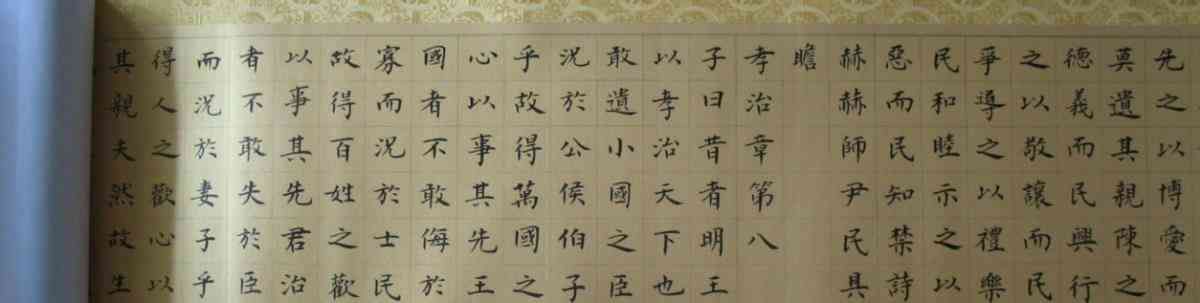 先之以博愛而
莫遺其親陳之
德義而民興行
之以敬讓而民
爭導之以禮樂
民和睦示之以
惡而民知禁詩
赫赫師尹民具
瞻
孝治章第八
子曰昔者明王
以孝治天下也
敢遺小國之臣
況於公侯伯子
乎故得萬國之
心以事其先王
國者不敢侮於
寡而況於士民
故得百姓之歡
以事其先君治
者不敢失於臣
而況於妻子乎
得人之歡心以
其親夫然故生